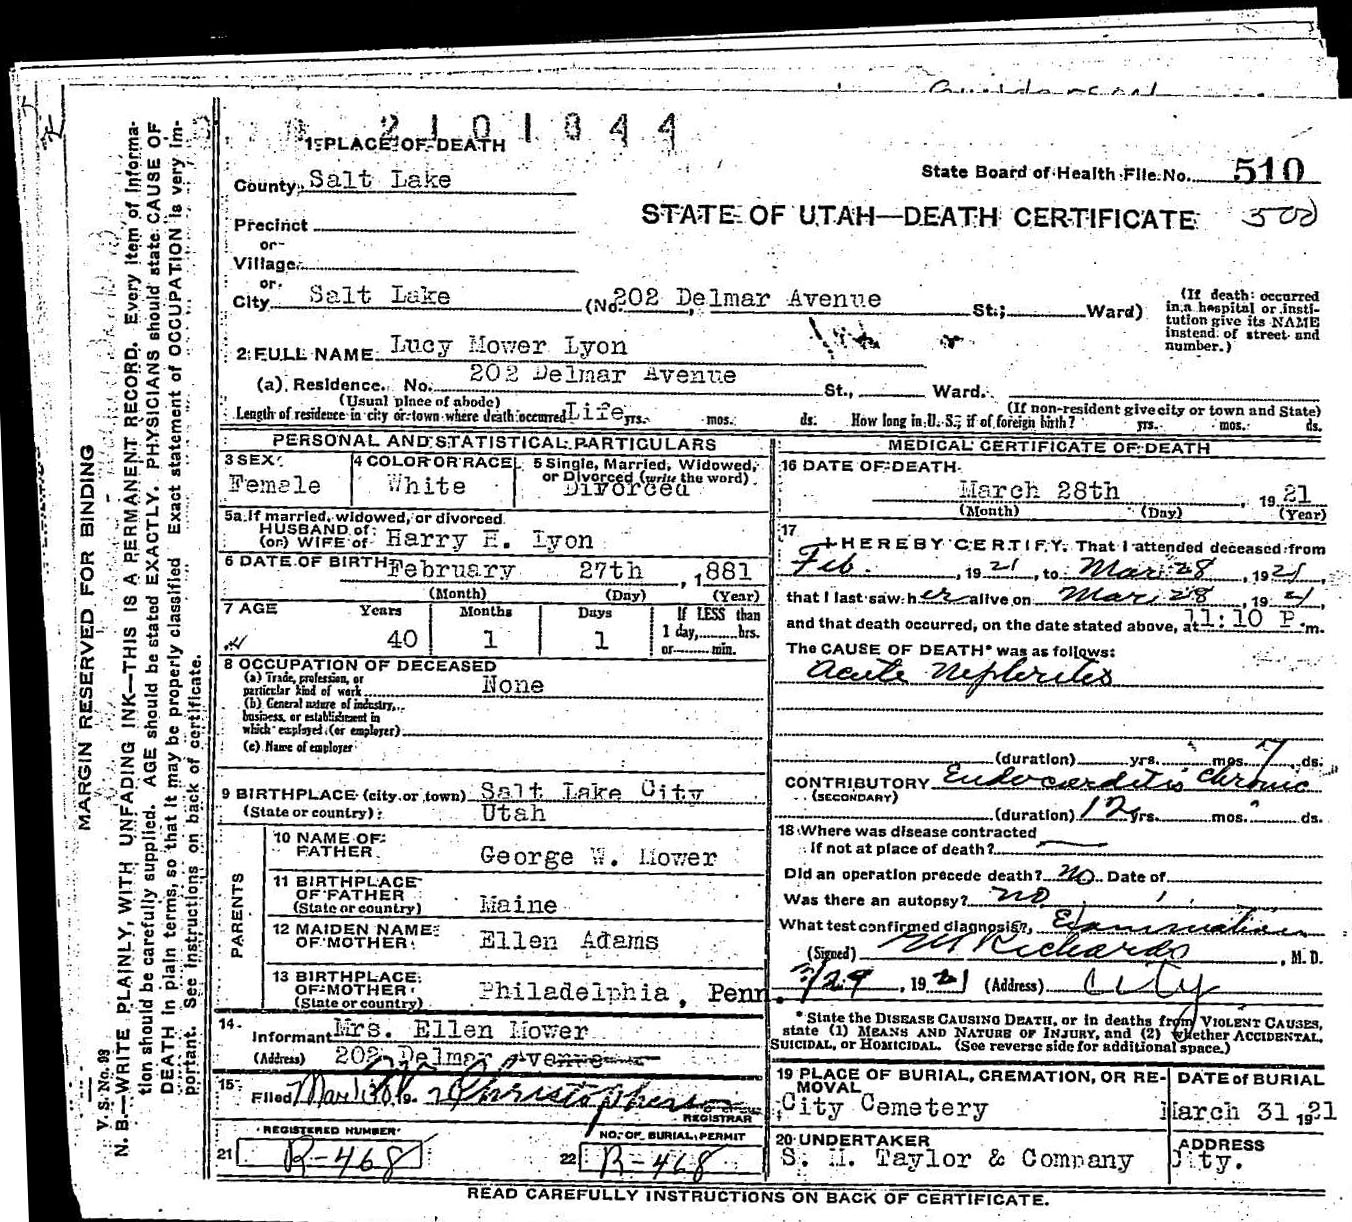 2101844
1 PLACE OF DEATH
State Board of Health File No. 510
County Salt Lake
STATE OF UTAH—DEATH CERTIFICATE 500
Precinct
or
Village
or
City Salt Lake (No. 202 Delmar Avenue St.; Ward)
(If death occurred in a hospital or institution give its NAME instead of street and number.)
2 FULL NAME Lucy Mower Lyon
(a) Residence. No. 202 Delmar Avenue St., Ward.
(Usual place of abode) (If non-resident give city or town and State)
Length of residence in city or town where death occurred Life yrs. mos. ds. How long in U. S., if of foreign birth? yrs. mos. ds.
PERSONAL AND STATISTICAL PARTICULARS
3 SEX Female
4 COLOR OR RACE White
5 Single, Married, Widowed, or Divorced (write the word) Divorced
5a If married, widowed, or divorced
HUSBAND of
(or) WIFE of Harry E. Lyon
6 DATE OF BIRTH February 27th, 1881
(Month) (Day) (Year)
7 AGE Years 40 Months 1 Days 1 If LESS than 1 day, hrs. or min.
8 OCCUPATION OF DECEASED
(a) Trade, profession, or particular kind of work None
(b) General nature of industry, business, or establishment in which employed (or employer)
(c) Name of employer
9 BIRTHPLACE (city or town) Salt Lake City
(State or country) Utah
PARENTS
10 NAME OF FATHER George W. Mower
11 BIRTHPLACE OF FATHER (State or country) Maine
12 MAIDEN NAME OF MOTHER Ellen Adams
13 BIRTHPLACE OF MOTHER (State or country) Philadelphia, Penn.
14 Informant Mrs. Ellen Mower
(Address) 202 Delmar Avenue
15 Filed Mar 19 Christopherson
REGISTRAR
REGISTERED NUMBER
21 R-468
NO. OF BURIAL PERMIT
22 R-468
MEDICAL CERTIFICATE OF DEATH
16 DATE OF DEATH
March 28th 1921
(Month) (Day) (Year)
17 I HEREBY CERTIFY, That I attended deceased from
Feb. , 1921, to Mar 28, 1921,
that I last saw her alive on Mar 28, 1921,
and that death occurred, on the date stated above, at 11:10 P. m.
The CAUSE OF DEATH* was as follows:
Acute Nephritis
(duration) yrs. mos. 7 ds.
CONTRIBUTORY Endocarditis Chronic
(SECONDARY)
(duration) 12 yrs. mos. ds.
18 Where was disease contracted
If not at place of death?
Did an operation precede death? No Date of
Was there an autopsy? no
What test confirmed diagnosis? Examination
(Signed) Richards, M. D.
3/29, 1921 (Address) City
* State the DISEASE CAUSING DEATH, or in deaths from VIOLENT CAUSES, state (1) MEANS AND NATURE OF INJURY, and (2) whether ACCIDENTAL, SUICIDAL, or HOMICIDAL. (See reverse side for additional space.)
19 PLACE OF BURIAL, CREMATION, OR REMOVAL City Cemetery
DATE of BURIAL March 31 1921
20 UNDERTAKER S. M. Taylor & Company
ADDRESS City.
READ CAREFULLY INSTRUCTIONS ON BACK OF CERTIFICATE.
MARGIN RESERVED FOR BINDING
V. S. No. 98
N. B.—WRITE PLAINLY, WITH UNFADING INK—THIS IS A PERMANENT RECORD. Every item of informa-
tion should be carefully supplied. AGE should be stated EXACTLY. PHYSICIANS should state CAUSE OF
DEATH in plain terms, so that it may be properly classified. Exact statement of OCCUPATION is very im-
portant. See instructions on back of certificate.